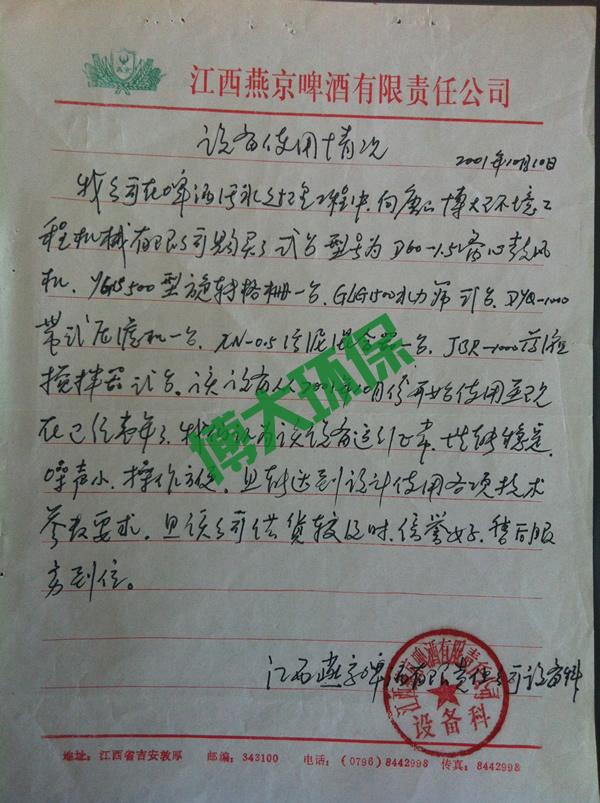 燕京
江西燕京啤酒有限责任公司
设备使用情况
2001年10月10日
我公司在啤酒污水处理工程中,向唐山博大环境工
程机械有限公司购买了 台型号为D60-1.5离心鼓风
机、YGS500型旋转格栅一台、GLG1500水力筛 台、DYQ-1000
带式压滤机一台、 N-0.5污泥混合器一台、JBR-1000药液
搅拌器 台。该设备从2001年10月份开始使用至现
在已经 年了,我 认为该设备运行正常,运转稳定、
噪声小、操作方便,且 达到设计使用各项技术
参数要求,且该公司供货较及时,信誉好,售后服
务到位。
江西燕京啤酒有限责任公司设备科
江西燕京啤酒有限责任公司
设备科
博大环保
地址:江西省吉安敦厚 邮编:343100 电话:(0796)8442998 传真:8442998